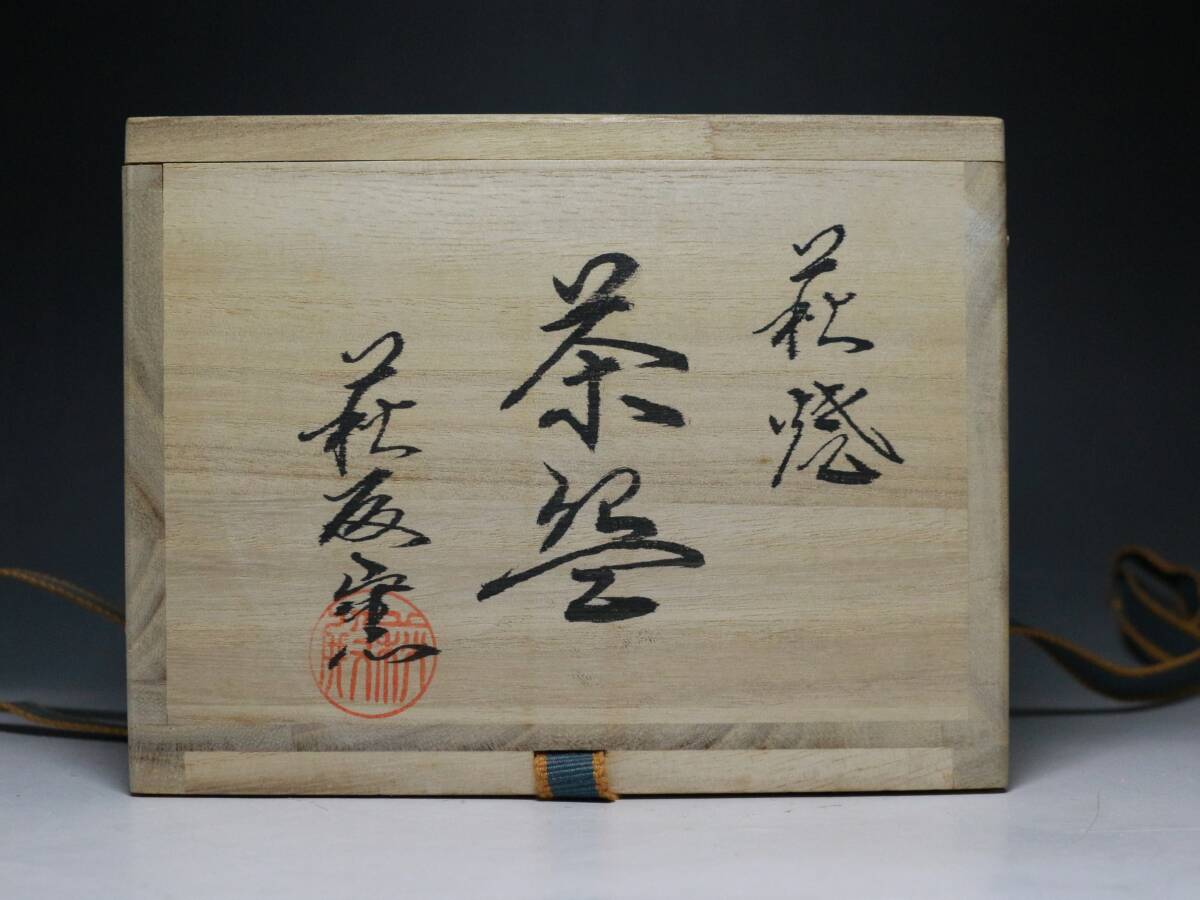 萩焼
茶盌
萩 窯